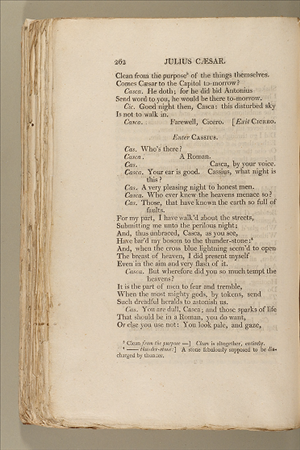 262 JULIUS CÆSAR.
Clean from the purpose⁸ of the things themselves.
Comes Cæsar to the Capitol to-morrow?
Casca. He doth; for he did bid Antonius
Send word to you, he would be there to-morrow.
Cic. Good night then, Casca: this disturbed sky
Is not to walk in.
Casca. Farewell, Cicero. [Exit CICERO.
Enter CASSIUS.
Cas. Who's there?
Casca. A Roman.
Cas. Casca, by your voice.
Casca. Your ear is good. Cassius, what night is
this?
Cas. A very pleasing night to honest men.
Casca. Who ever knew the heavens menace so?
Cas. Those, that have known the earth so full of
faults.
For my part, I have walk'd about the streets,
Submitting me unto the perilous night;
And, thus unbraced, Casca, as you see,
Have bar'd my bosom to the thunder-stone:⁹
And, when the cross blue lightning seem'd to open
The breast of heaven, I did present myself
Even in the aim and very flash of it.
Casca. But wherefore did you so much tempt the
heavens?
It is the part of men to fear and tremble,
When the most mighty gods, by tokens, send
Such dreadful heralds to astonish us.
Cas. You are dull, Casca; and those sparks of life
That should be in a Roman, you do want,
Or else you use not: You look pale, and gaze,
⁸ Clean from the purpose —] Clean is altogether, entirely.
⁹ —— thunder-stone:] A stone fabulously supposed to be dis-
charged by thunder.